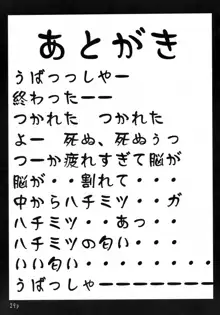 あとがき
うばっっしゃー
終わったーー
つかれた　つかれた
よー　死ぬ、死ぬぅっ
つーか疲れすぎて脳が
脳が・・割れて・・・
中からハチミツ・・が
ハチミツ・・あっ・・
ハチミツの匂い・・・
いい匂い・・・・・・・
うばっしゃーーーーーーー